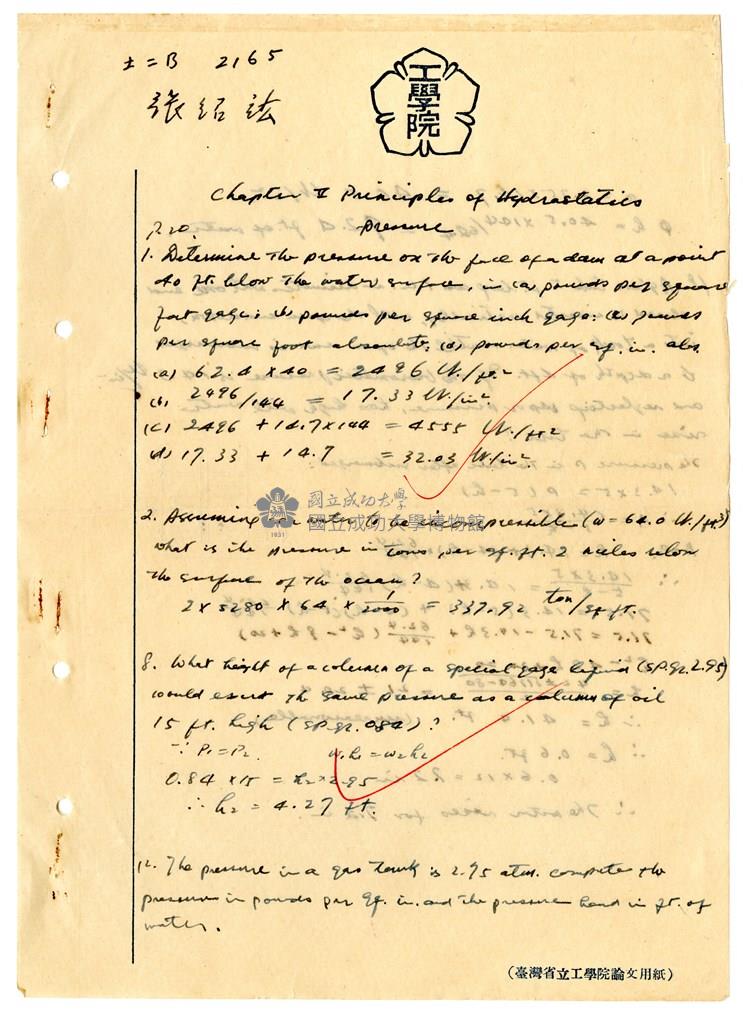 土二B 2165
張紹竑
工學院
Chapter II Principles of Hydrostatics
P.20. Pressure
1. Determine the pressure on the face of a dam at a point
40 ft. below the water surface, in (a) pounds per square
foot gage; (b) pounds per square inch gage; (c) pounds
per square foot absolute; (d) pounds per sq. in. abs.
(a) 62.4 × 40 = 2496 lb./ft.²
(b) 2496/144 = 17.33 lb./in²
(c) 2496 + 14.7×144 = 4555 lb./ft²
(d) 17.33 + 14.7 = 32.03 lb/in².
國立成功大學
國立成功大學博物館
1931
2. Assuming water to be incompressible (w = 64.0 lb./ft.³)
what is the pressure in tons per sq. ft. 2 miles below
the surface of the ocean?
2 × 5280 × 64 × 1/2000 = 337.92 ton/sq ft.
8. What height of a column of a special gage liquid (sp.gr. 2.95)
would exert the same pressure as a column of oil
15 ft. high (sp.gr. 0.84)?
∵ P₁=P₂. w₁h₁=w₂h₂
0.84 ×15 = h₂×2.95
∴ h₂ = 4.27 ft.
12. The pressure in a gas tank is 2.75 atm. compute the
pressure in pounds per sq. in. and the pressure head in ft. of
water.
(臺灣省立工學院論文用紙)